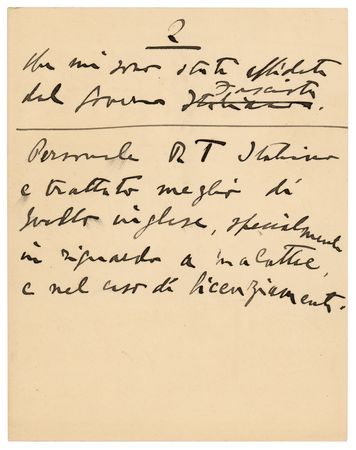 2
che mi sono state affidate
Fascista
dal Governo Italiano.
Personale RT Italiano
e trattato meglio di
quello inglese, specialmente
in riguardo a malattie,
e nel caso di licenziamenti.